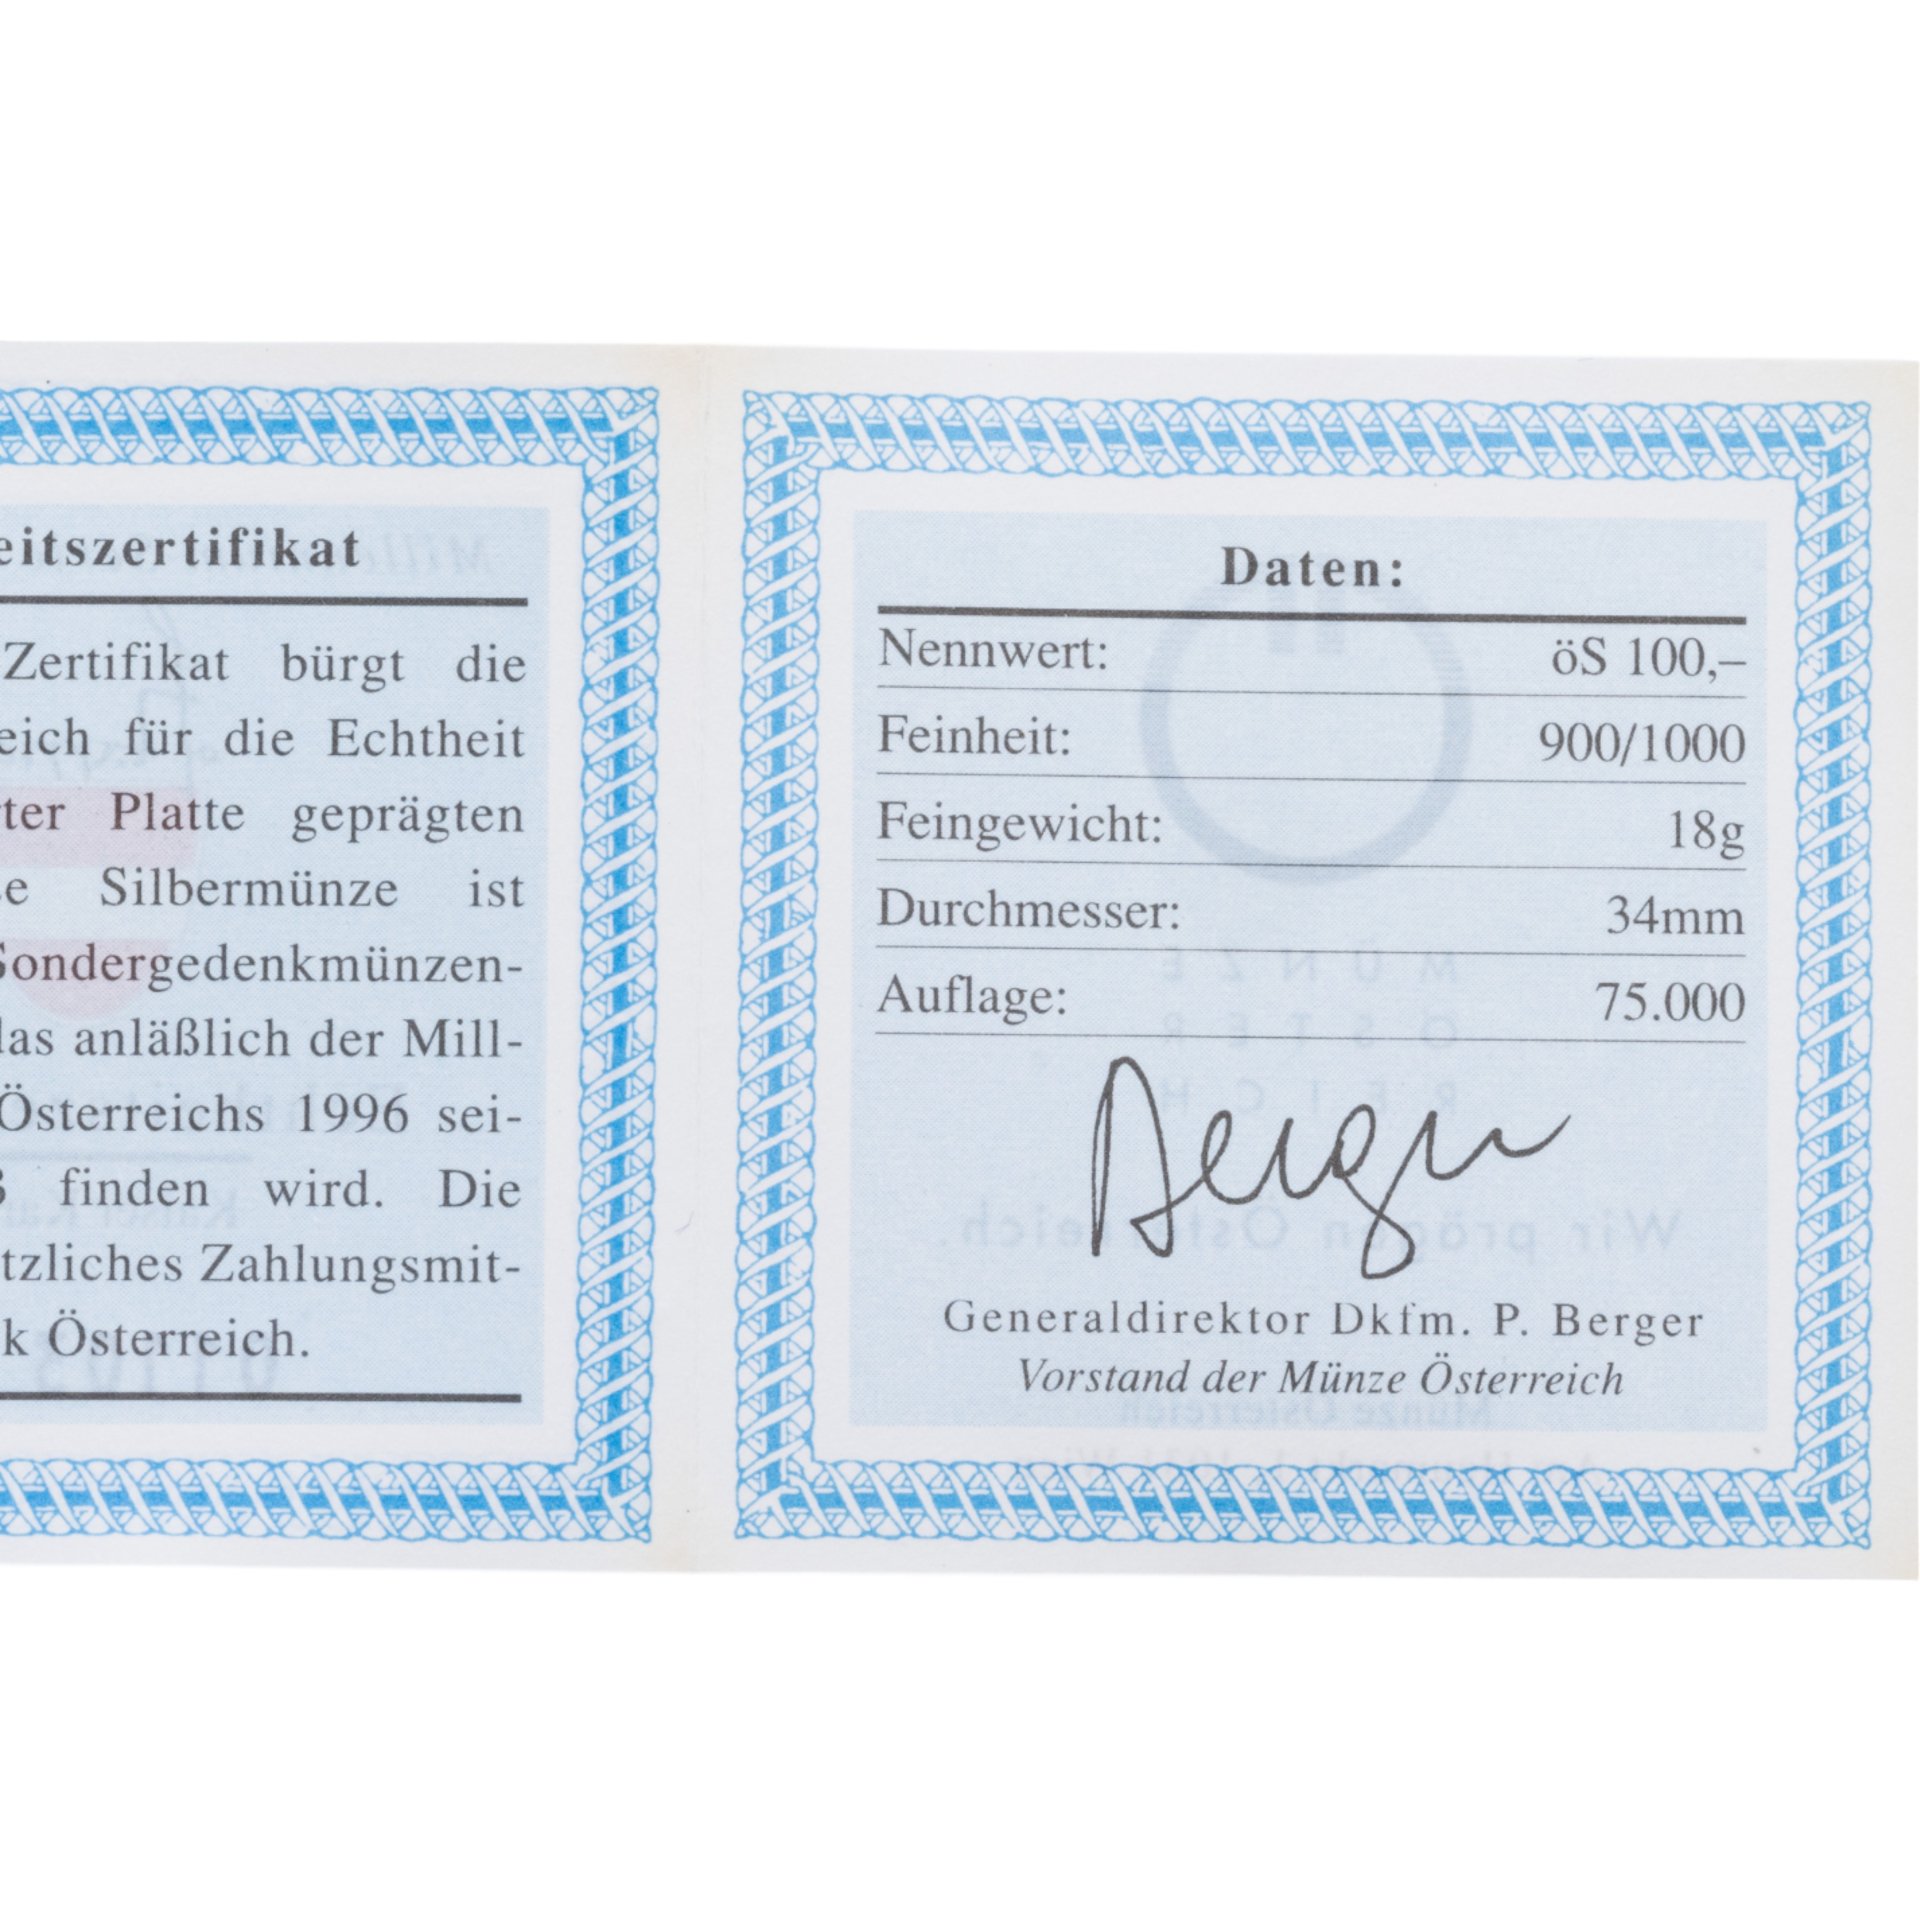 eitszertifikat
Zertifikat bürgt die
eich für die Echtheit
ter Platte geprägten
e Silbermünze ist
Sondergedenkmünzen-
das anläßlich der Mill-
Österreichs 1996 sei-
finden wird. Die
tzliches Zahlungsmit-
k Österreich.
Daten:
Nennwert: öS 100,–
Feinheit: 900/1000
Feingewicht: 18g
Durchmesser: 34mm
Auflage: 75.000
Berger
Generaldirektor Dkfm. P. Berger
Vorstand der Münze Österreich